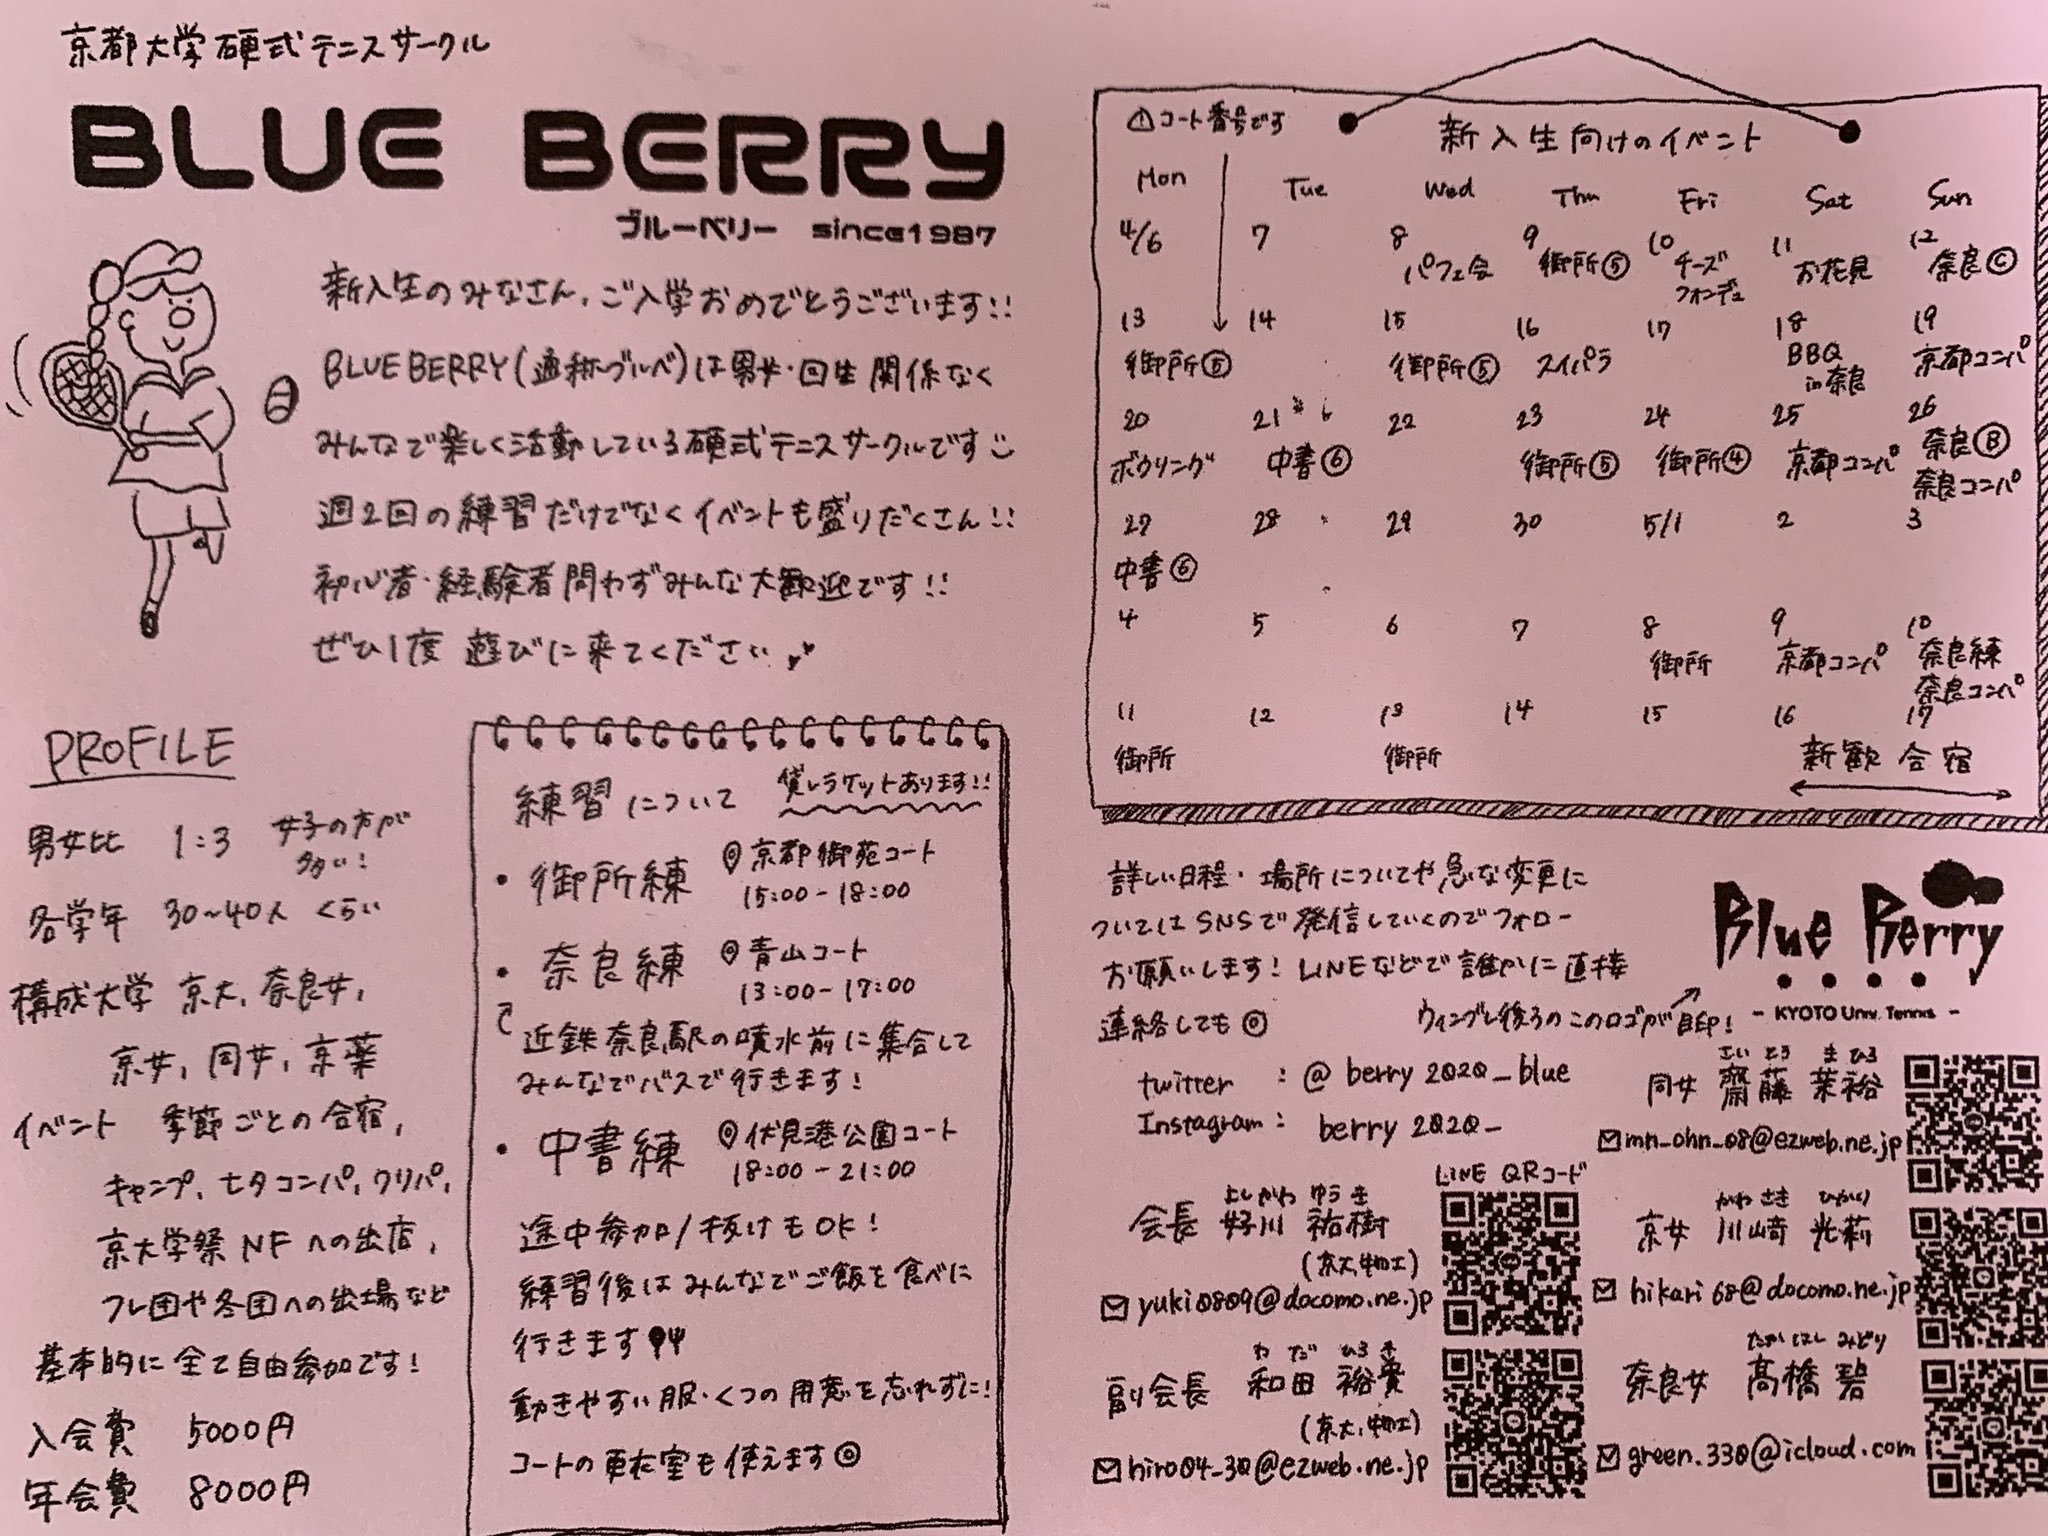 京都大学硬式テニスサークル
BLUE BERRY
ブルーベリー since1987
新入生のみなさん、ご入学おめでとうございます!!
BLUE BERRY(通称ブルベ)は男女・回生関係なく
みんなで楽しく活動している硬式テニスサークルです
週2回の練習だけでなくイベントも盛りだくさん!!
初心者・経験者問わずみんな大歓迎です!!
ぜひ1度遊びに来てください
PROFILE
男女比 1:3 女子の方が
多い!
各学年 30~40人くらい
構成大学 京大、奈良女、
京女、同女、京薬
イベント 季節ごとの合宿、
キャンプ、七夕コンパ、クリパ、
京大学祭NFへの出店、
フレ団や冬団への出場など
基本的に全て自由参加です!
入会費 5000円
年会費 8000円
練習について 貸しラケットあります!!
・御所練 京都御苑コート
15:00-18:00
・奈良練 青山コート
13:00-17:00
近鉄奈良駅の噴水前に集合して
みんなでバスで行きます!
・中書練 伏見港公園コート
18:00-21:00
途中参加/抜けもOK!
練習後はみんなでご飯を食べに
行きます
動きやすい服・くつの用意を忘れずに!
コートの更衣室も使えます◎
⚠コート番号です
新入生向けのイベント
Mon Tue Wed Thu Fri Sat Sun
4/6 7 8 9 10 11 12
パフェ会 御所⑤ チーズ お花見 奈良Ⓒ
フォンデュ
13 14 15 16 17 18 19
御所⑤ 御所⑤ スイパラ BBQ 京都コンパ
in奈良
20 21 22 23 24 25 26
ボウリング 中書⑥ 御所⑤ 御所④ 京都コンパ 奈良Ⓑ
奈良コンパ
27 28 29 30 5/1 2 3
中書⑥
4 5 6 7 8 9 10
御所 京都コンパ 奈良練
奈良コンパ
11 12 13 14 15 16 17
御所 御所 新歓合宿
詳しい日程・場所についてや急な変更に
ついてはSNSで発信していくのでフォロー
お願いします!LINEなどで誰かに直接
連絡しても◎
Blue Berry
- KYOTO Univ. Tennis -
ウィンブレ後ろのこのロゴが目印!
twitter : @berry2020_blue
Instagram: berry2020_
LINE QRコード
会長 好川 祐樹
よしかわ ゆうき
(京大,物工)
yuki0809@docomo.ne.jp
副会長 和田 裕貴
わだ ひろき
(京大,物工)
hiro04_30@ezweb.ne.jp
さいとう まひろ
同女 齋藤 茉裕
mn_ohn_08@ezweb.ne.jp
かわさき ひかり
京女 川崎 光莉
hikari68@docomo.ne.jp
たかはし みどり
奈良女 髙橋 碧
green.330@icloud.com